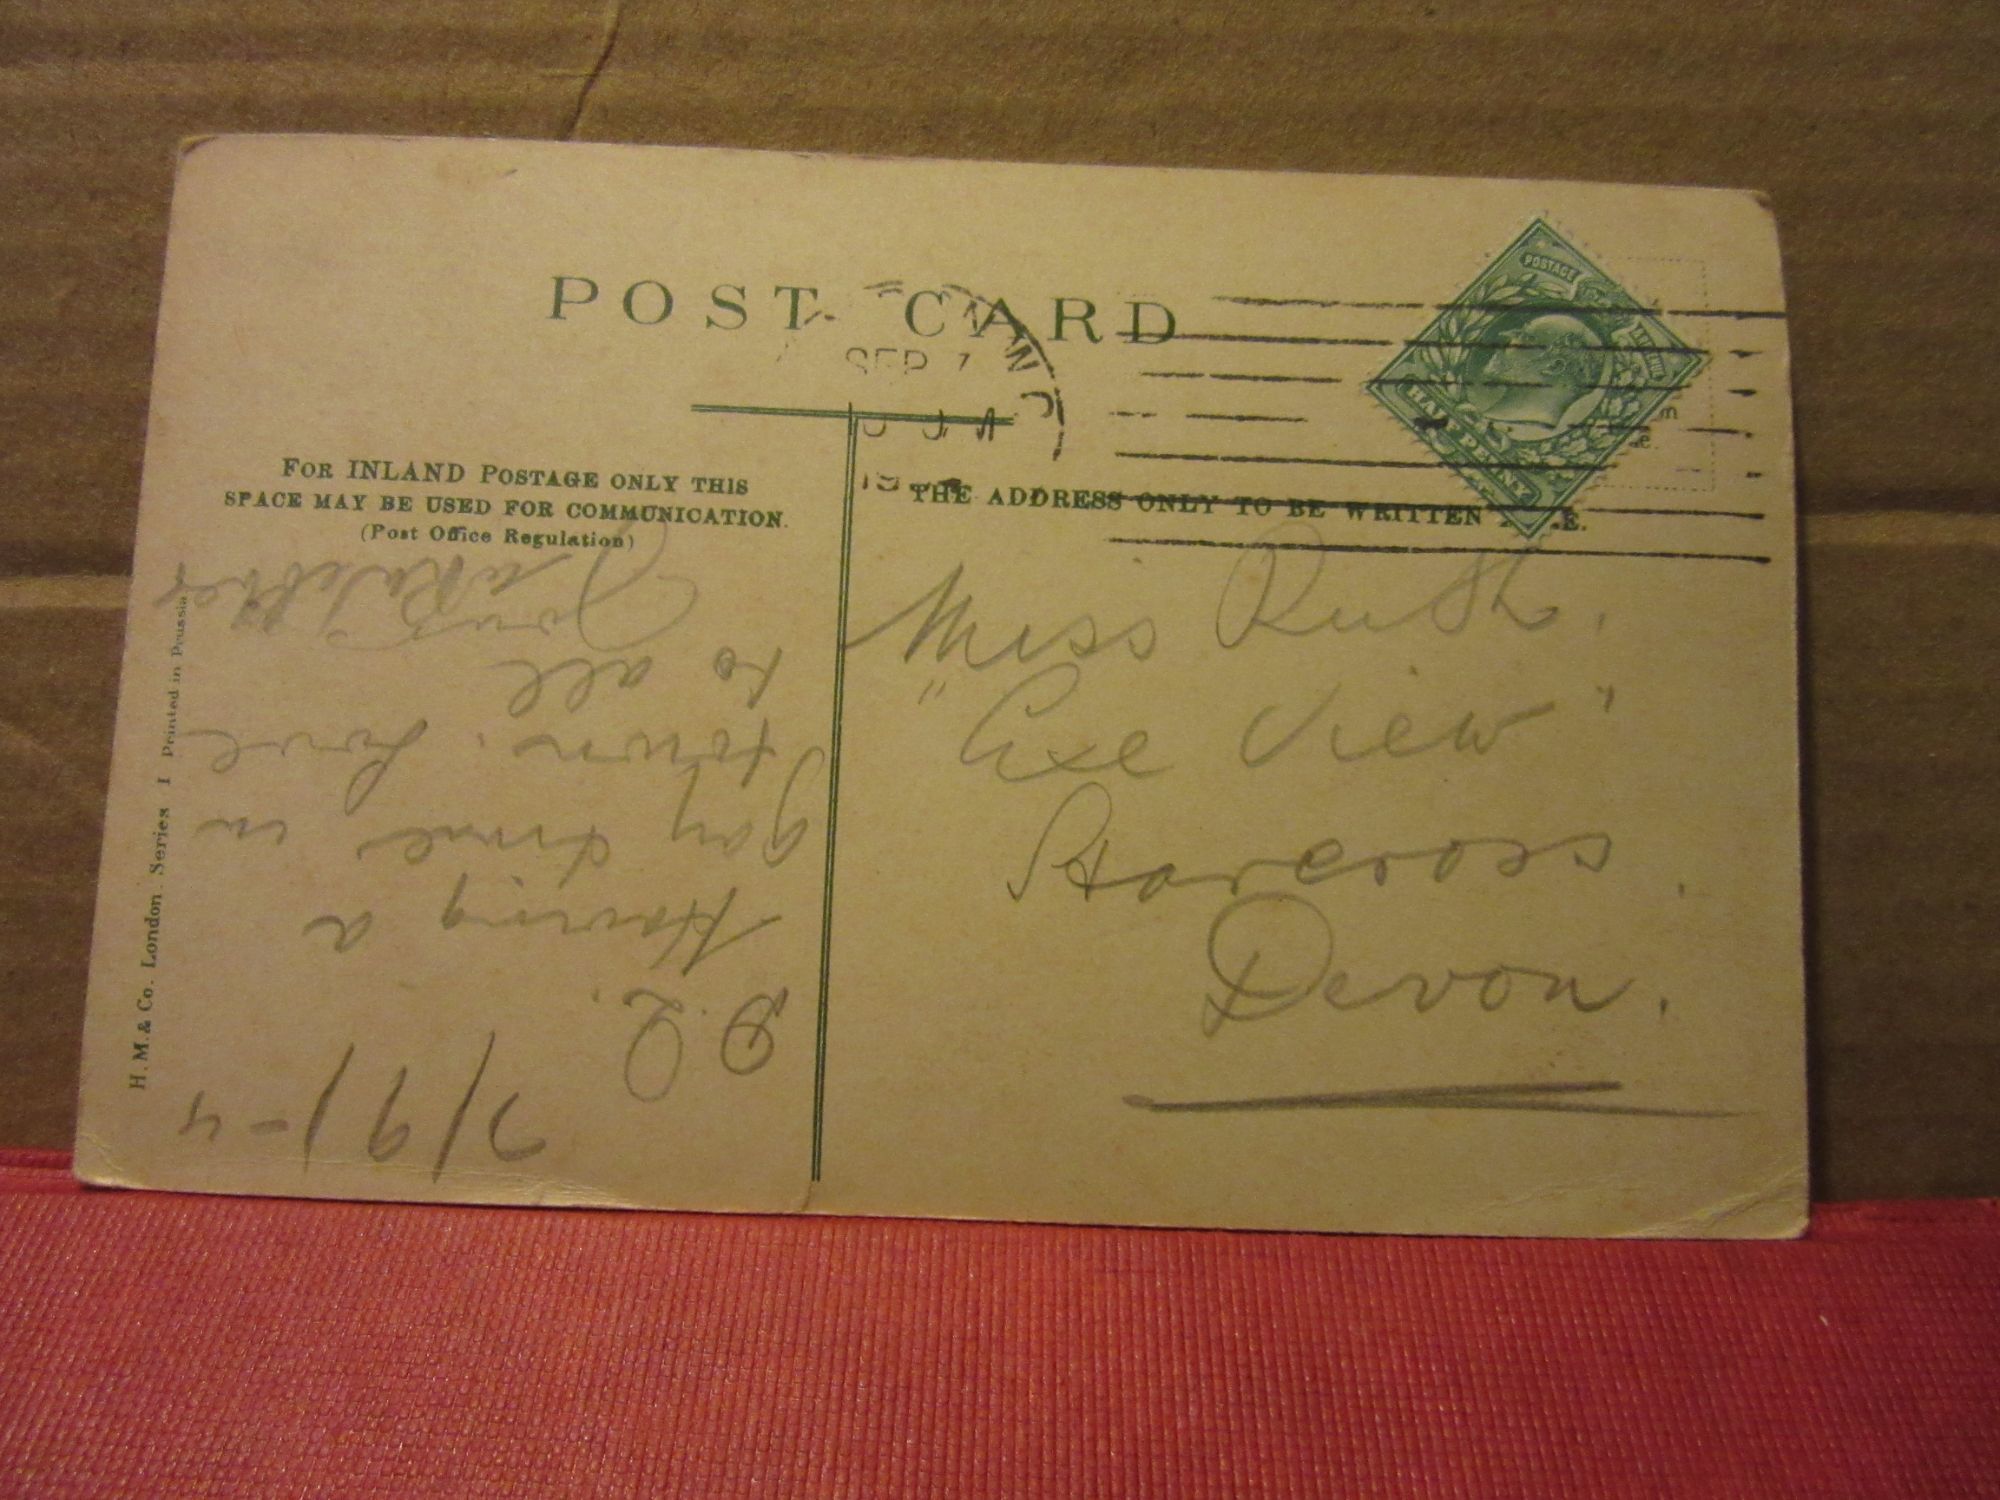 POST CARD
SEP 7
FOR INLAND POSTAGE ONLY THIS
SPACE MAY BE USED FOR COMMUNICATION.
(Post Office Regulation)
THE ADDRESS ONLY TO BE WRITTEN
POSTAGE
HALFPENNY
Miss Rush.
"Exe View"
Starcross.
Devon.
7/9/-4
D. L.
Having a
gay time in
town. Love
to all
Your
H. M. & Co. London. Series I Printed in Prussia